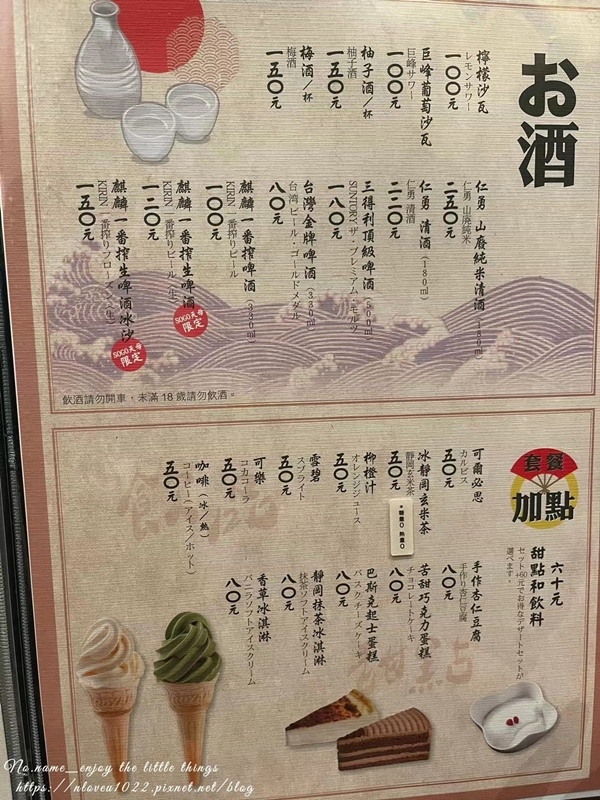 お酒
檸檬沙瓦
レモンサワー
一〇〇元
巨峰葡萄沙瓦
巨峰サワー
一〇〇元
柚子酒／杯
柚子酒
一五〇元
梅酒／杯
梅酒
一五〇元
仁勇 山廢純米清酒（180ml）
仁勇 山廃純米
二五〇元
仁勇 清酒（180ml）
仁勇 清酒
二二〇元
三得利頂級啤酒（500ml）
SUNTORY ザ・プレミアム・モルツ
一八〇元
台灣金牌啤酒（330ml）
台湾ビール・ゴールドメダル
八〇元
麒麟一番搾啤酒（330ml）
KIRIN 一番搾りビール
一〇〇元
麒麟一番搾生啤酒
KIRIN 一番搾りビール（生）
一二〇元
SOGO天母
限定
麒麟一番搾生啤酒冰沙
KIRIN 一番搾りフローズン（生）
一五〇元
SOGO天母
限定
飲酒請勿開車・未滿18歲請勿飲酒。
套餐
加點
六十元
甜點和飲料
セット+60元でお得なデザートセットが
選べます。
可爾必思
カルピス
五〇元
冰靜岡玄米茶
静岡玄米茶
五〇元
*糖量0 熱量0
柳橙汁
オレンジジュース
五〇元
雪碧
スプライト
五〇元
可樂
コカコーラ
五〇元
咖啡（冰／熱）
コーヒー（アイス／ホット）
五〇元
手作杏仁豆腐
手作り杏仁豆腐
八〇元
苦甜巧克力蛋糕
チョコレートケーキ
八〇元
巴斯克起士蛋糕
バスクチーズケーキ
八〇元
靜岡抹茶冰淇淋
抹茶ソフトアイスクリーム
八〇元
香草冰淇淋
バニラソフトアイスクリーム
八〇元
No.name__enjoy the little things
https://nloveu1022.pixnet.net/blog